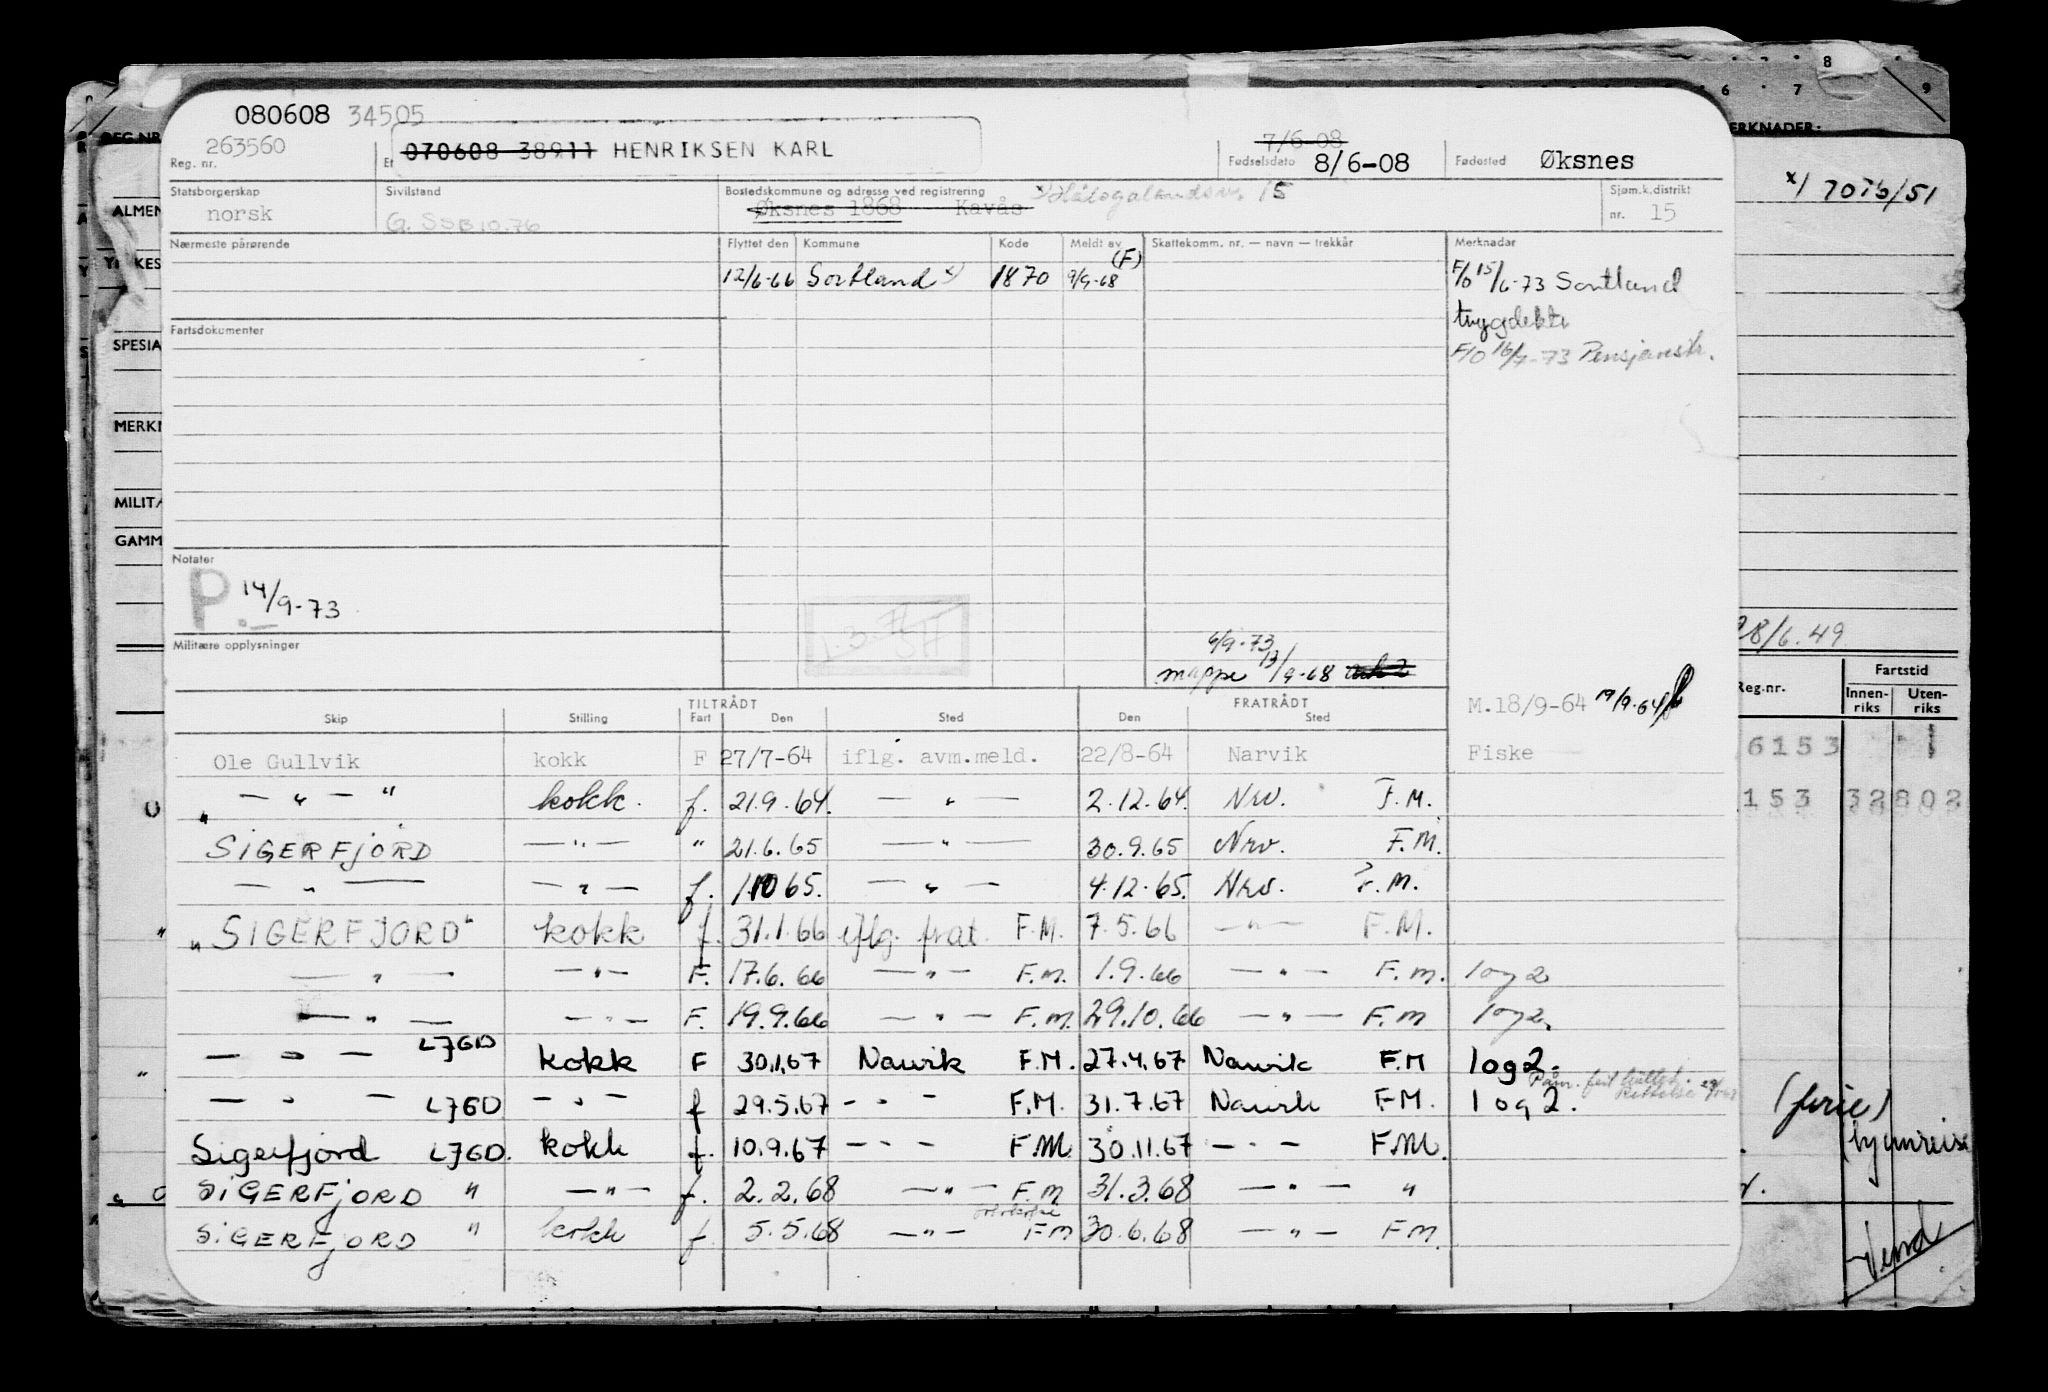 8
6 7 9
080608 34505
REG.NR
ERKNADER:
263560
Reg. nr.
070608 38911 HENRIKSEN KARL
7/6-08
Fødselsdato 8/6-08
Fødested Øksnes
x) 7076/51
Statsborgerskap
norsk
Sivilstand
G. SSB 10.76
Bostedskommune og adresse ved registrering x) Hålogalandsv. 15
Øksnes 1868 Kavås
Sjøm.k.distrikt
nr. 15
ALMEN
Nærmeste pårørende
Flyttet den Kommune Kode Meldt av Skattekomm. nr. — navn — trekkår Merknader
(F)
12/6-66 Sortland x) 1870 9/9-68
F/o 15/6-73 Sortland
trygdektr
F/o 16/7-73 Pensjonstr.
Fartsdokumenter
SPESIA
MERKN
MILITÆ
GAMM
Notater
P. 14/9-73
Militære opplysninger
6/9-73
mappe 13/9-68
28/6.49
TILTRÅDT FRATRÅDT
M.18/9-64 19/9-64
Skip Stilling Fart Den Sted Den Sted
Reg.nr. Fartstid
Innen-riks Uten-riks
Ole Gullvik kokk F 27/7-64 iflg. avm.meld. 22/8-64 Narvik Fiske
6153 1
— " — " kokk. f. 21.9.64. — " — 2.12.64. Nrv. F.M.
153 32802
SIGERFJORD — " — " 21.6.65 — " — 30.9.65 Nrv. F.M.
— " — — " — f. 1.10 65. — " — 4.12.65. Nrv. F.M.
"SIGERFJORD" kokk f. 31.1.66 iflg. frat. F.M. 7.5.66 — " — F.M.
— " — — " — F. 17.6.66 — " — F.M. 1.9.66 — " — F.M. 1 og 2
— " — — " — F. 19.9.66 — " — F.M. 29.10.66 — " — F.M 1 og 2.
— " — LJGD kokk F 30.1.67 Narvik F.M. 27.4.67 Narvik F.M 1 og 2.
— " — LJGD — " — f 29.5.67 — " — F.M. 31.7.67 Narvik F.M. 1 og 2.
(ferie)
Sigerfjord LJGD. kokk f. 10.9.67 — " — F.M. 30.11.67 — " — F.M.
SIGERFJORD " — " — f. 2.2.68 — " — F.M 31.3.68 — " — "
SIGERFJORD " kokk f 5.5.68 — " — FM 30.6.68 — " — FM.
Vend